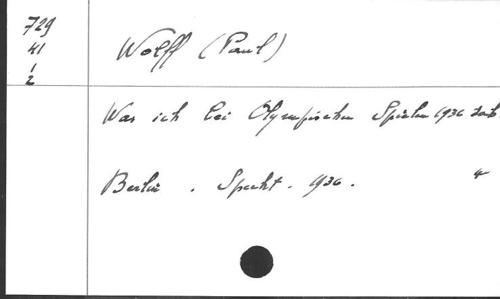 729
41
1
2
Wolff (Paul)
Was ich bei Olympischen Spielen 1936 sah.
Berlin. Specht. 1936.
4